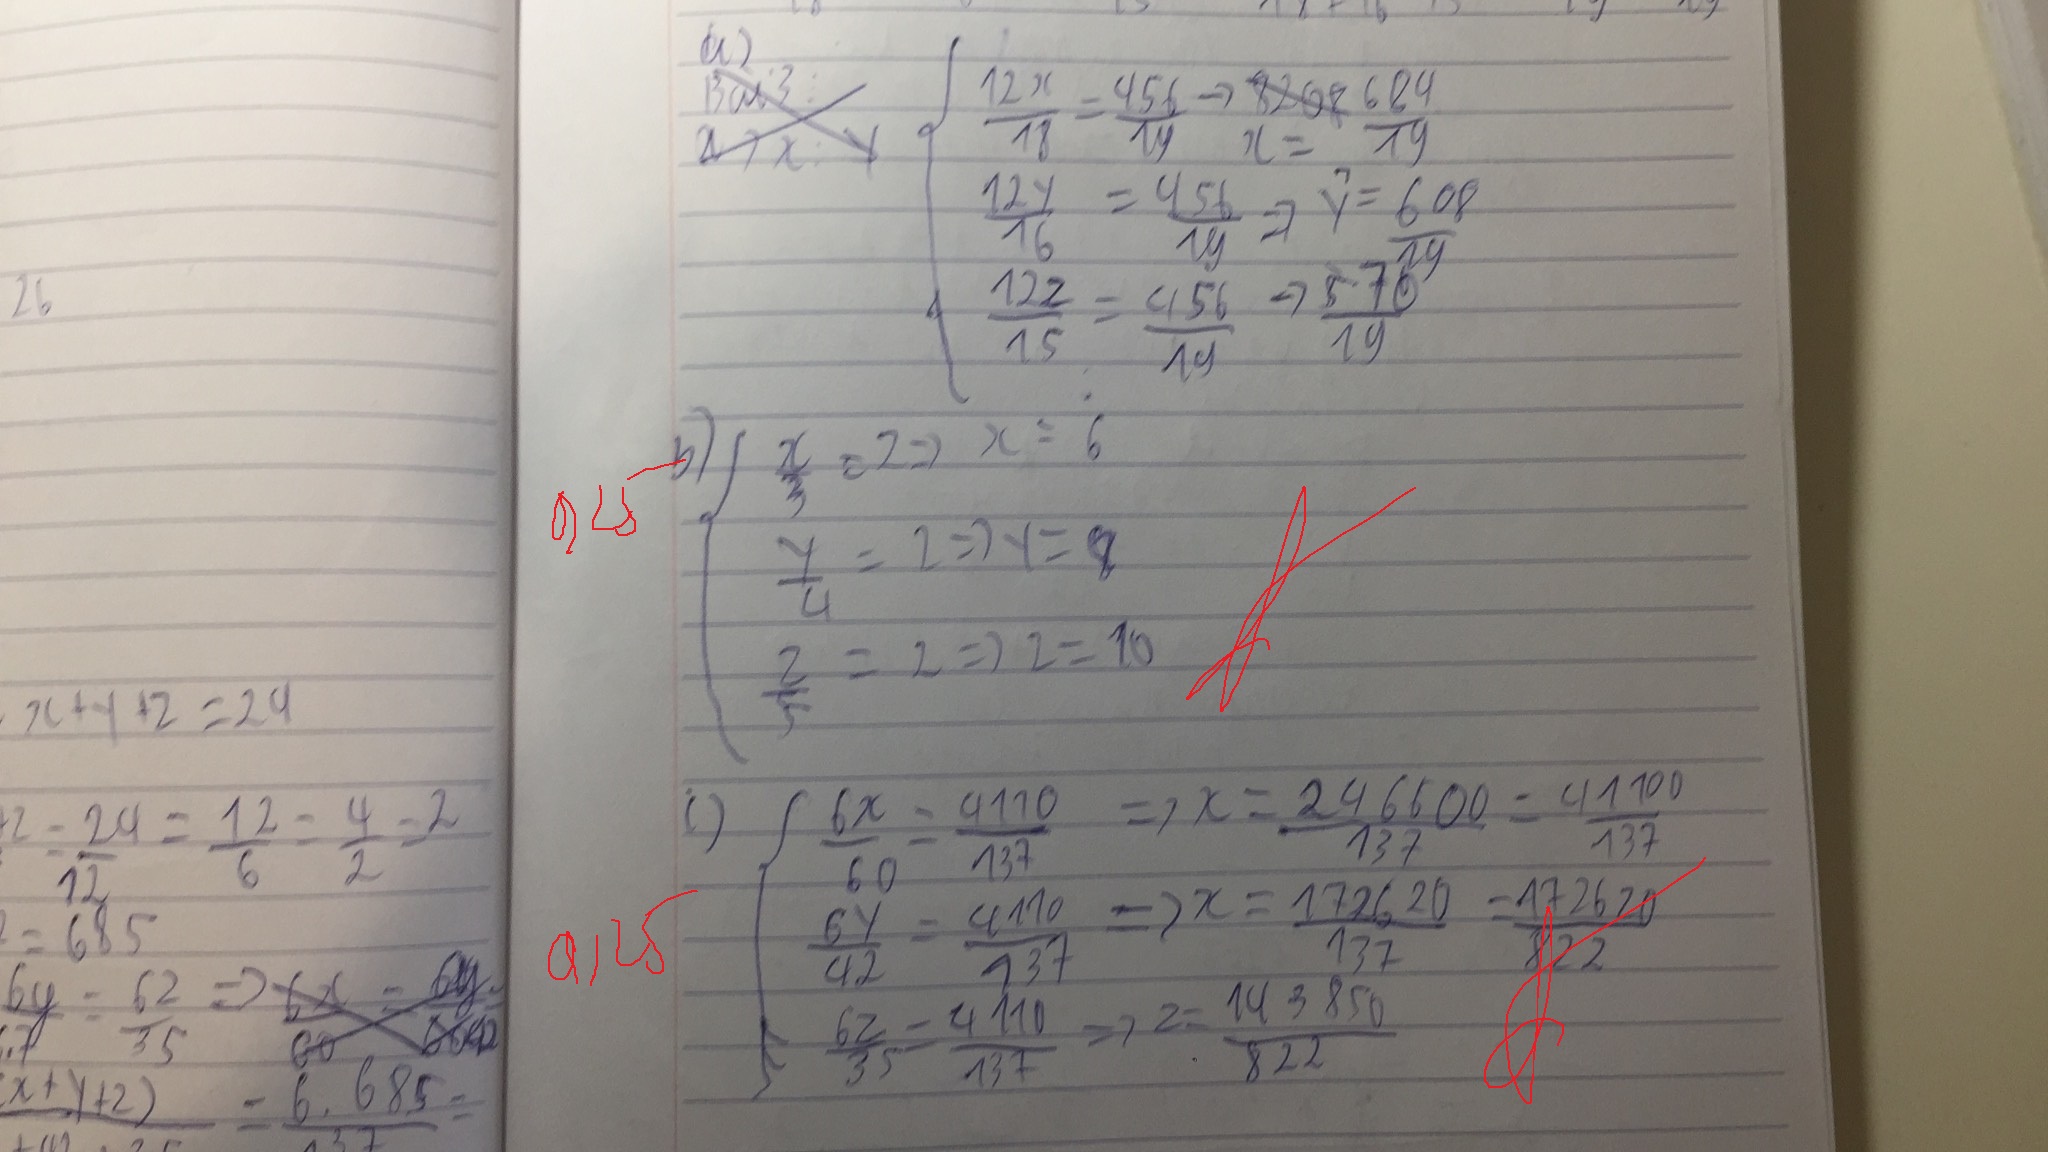 26
x+y+z=24
=24/12=12/6=4/2=2
=685
6y=6z/35=>6x/60=6y
x+y+z) = 6.685/137=
a)
Bài 3:
x: y
12x/18=456/19→8208 684/19
x=
12y/16=456/19=>y=608/19
12z/15=456/19→570/19
b) x/3=2=>x=6
0,25
y/4=2=>y=8
z/5=2=>z=10
c) 6x/60=4110/137=>x=246600/137=41100/137
6y/42=4110/137=>x=172620/137=172620/822
0,25
6z/35=4110/137=>z=143850/822